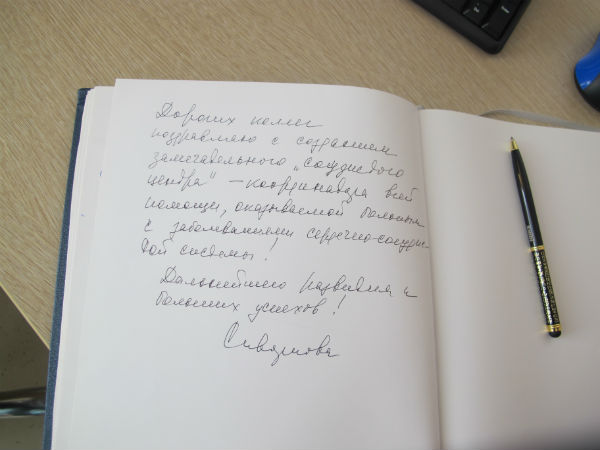 Дорогих коллег
поздравляю с созданием
замечательного „сосудистого
центра" – координатора всей
помощи, оказываемой больным
с заболеваниями сердечно-сосудис
той системы!
Дальнейшего развития и
больших успехов!